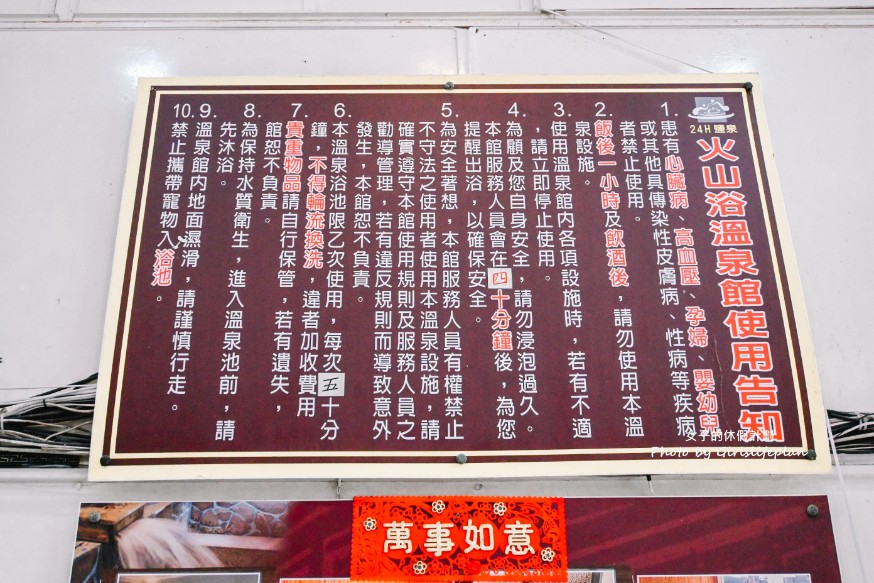 24H 鹽泉
火山浴溫泉館使用告知
1. 患有心臟病、高血壓、孕婦、嬰幼兒
或其他具傳染性皮膚病、性病等疾病
者禁止使用。
2. 飯後一小時及飲酒後，請勿使用本溫
泉設施。
3. 使用溫泉館內各項設施時，若有不適
，請立即停止使用。
4. 為顧及您自身安全，請勿浸泡過久。
本館服務人員會在四十分鐘後，為您
提醒出浴，以確保安全。
5. 為安全著想，本館服務人員有權禁止
不守法之使用者使用本溫泉設施，請
確實遵守本館使用規則及服務人員之
勸導管理，若有違反規則而導致意外
發生，本館恕不負責。
6. 本溫泉浴池限乙次使用，每次五十分
鐘，不得輪流換洗，違者加收費用
7. 貴重物品請自行保管，若有遺失，
館恕不負責。
8. 為保持水質衛生，進入溫泉池前，請
先沐浴。
9. 溫泉館內地面濕滑，請謹慎行走。
10. 禁止攜帶寵物入浴池。
女子的休假計劃
Photo by Girlslifeplan
萬事如意